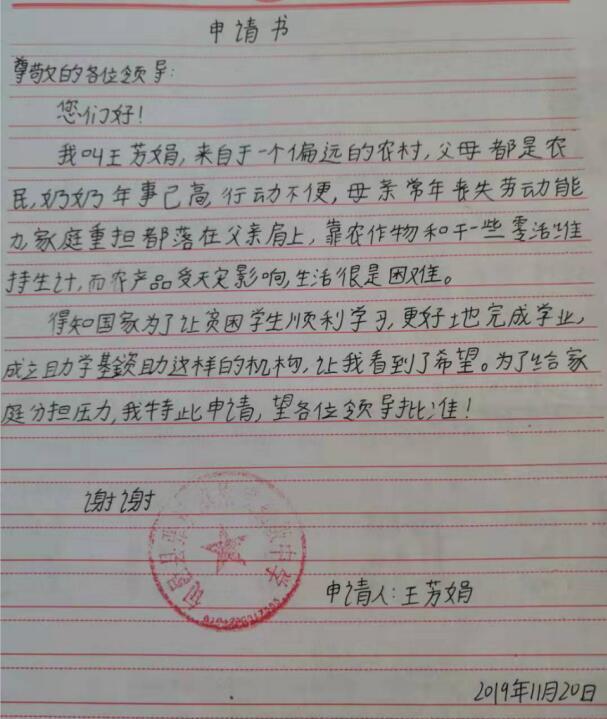 申请书
尊敬的各位领导:
您们好!
我叫王芳娟,来自于一个偏远的农村,父母都是农
民,奶奶年事已高,行动不便,母亲常年丧失劳动能
力,家庭重担都落在父亲肩上,靠农作物和干一些零活维
持生计,而农产品受天灾影响,生活很是困难。
得知国家为了让贫困学生顺利学习,更好地完成学业,
成立助学基资助这样的机构,让我看到了希望。为了给家
庭分担压力,我特此申请,望各位领导批准!
谢谢
中学
申请人:王芳娟
2019年11月20日